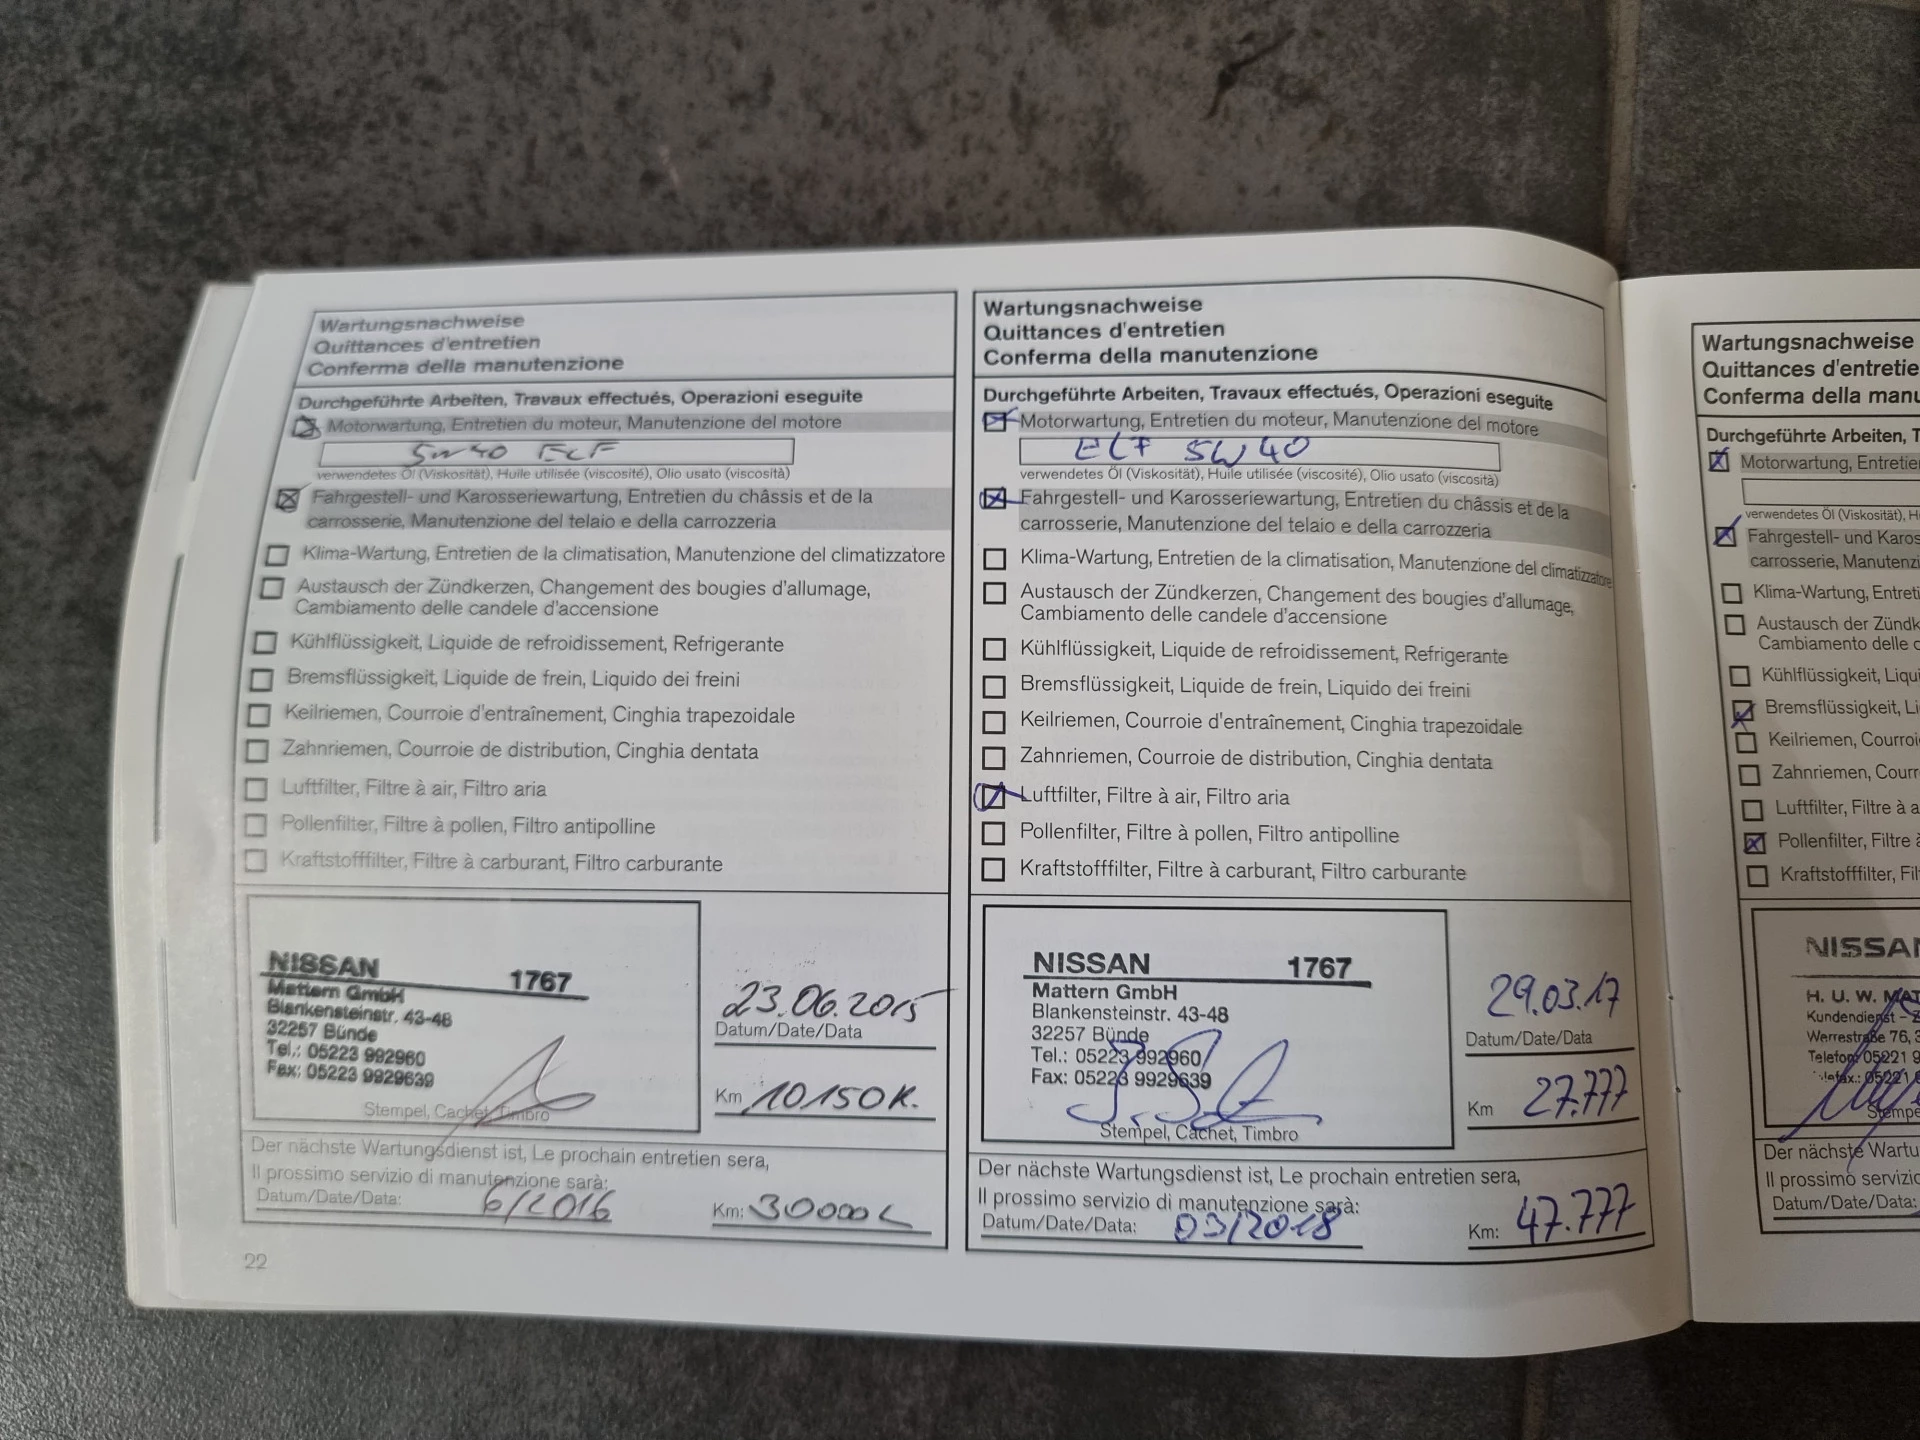 Wartungsnachweise
Quittances d'entretien
Conferma della manutenzione
Durchgeführte Arbeiten, Travaux effectués, Operazioni eseguite
Motorwartung, Entretien du moteur, Manutenzione del motore
5W40 ELF
verwendetes Öl (Viskosität), Huile utilisée (viscosité), Olio usato (viscosità)
Fahrgestell- und Karosseriewartung, Entretien du châssis et de la
carrosserie, Manutenzione del telaio e della carrozzeria
Klima-Wartung, Entretien de la climatisation, Manutenzione del climatizzatore
Austausch der Zündkerzen, Changement des bougies d'allumage,
Cambiamento delle candele d'accensione
Kühlflüssigkeit, Liquide de refroidissement, Refrigerante
Bremsflüssigkeit, Liquide de frein, Liquido dei freini
Keilriemen, Courroie d'entraînement, Cinghia trapezoidale
Zahnriemen, Courroie de distribution, Cinghia dentata
Luftfilter, Filtre à air, Filtro aria
Pollenfilter, Filtre à pollen, Filtro antipolline
Kraftstofffilter, Filtre à carburant, Filtro carburante
NISSAN 1767
Mattern GmbH
Blankensteinstr. 43-48
32257 Bünde
Tel.: 05223 992960
Fax: 05223 9929639
Stempel, Cachet, Timbro
23.06.2015
Datum/Date/Data
Km 10150 K.
Der nächste Wartungsdienst ist, Le prochain entretien sera,
Il prossimo servizio di manutenzione sarà:
Datum/Date/Data: 6/2016 Km: 30000
22
Wartungsnachweise
Quittances d'entretien
Conferma della manutenzione
Durchgeführte Arbeiten, Travaux effectués, Operazioni eseguite
Motorwartung, Entretien du moteur, Manutenzione del motore
ELF 5W40
verwendetes Öl (Viskosität), Huile utilisée (viscosité), Olio usato (viscosità)
Fahrgestell- und Karosseriewartung, Entretien du châssis et de la
carrosserie, Manutenzione del telaio e della carrozzeria
Klima-Wartung, Entretien de la climatisation, Manutenzione del climatizzatore
Austausch der Zündkerzen, Changement des bougies d'allumage,
Cambiamento delle candele d'accensione
Kühlflüssigkeit, Liquide de refroidissement, Refrigerante
Bremsflüssigkeit, Liquide de frein, Liquido dei freini
Keilriemen, Courroie d'entraînement, Cinghia trapezoidale
Zahnriemen, Courroie de distribution, Cinghia dentata
Luftfilter, Filtre à air, Filtro aria
Pollenfilter, Filtre à pollen, Filtro antipolline
Kraftstofffilter, Filtre à carburant, Filtro carburante
NISSAN 1767
Mattern GmbH
Blankensteinstr. 43-48
32257 Bünde
Tel.: 05223 992960
Fax: 05223 9929639
Stempel, Cachet, Timbro
29.03.17
Datum/Date/Data
Km 27.777
Der nächste Wartungsdienst ist, Le prochain entretien sera,
Il prossimo servizio di manutenzione sarà:
Datum/Date/Data: 03/2018 Km: 47.777
Wartungsnachweise
Quittances d'entretie
Conferma della manu
Durchgeführte Arbeiten, T
Motorwartung, Entretie
verwendetes Öl (Viskosität), H
Fahrgestell- und Karos
carrosserie, Manutenzi
Klima-Wartung, Entreti
Austausch der Zündk
Cambiamento delle c
Kühlflüssigkeit, Liqu
Bremsflüssigkeit, Li
Keilriemen, Courroi
Zahnriemen, Courr
Luftfilter, Filtre à a
Pollenfilter, Filtre à
Kraftstofffilter, Fil
NISSAN
H. U. W. MAT
Kundendienst - Z
Werrestraße 76, 3
Telefon 05221 9
Telefax.: 05221
Stempe
Der nächste Wartu
Il prossimo servizio
Datum/Date/Data: